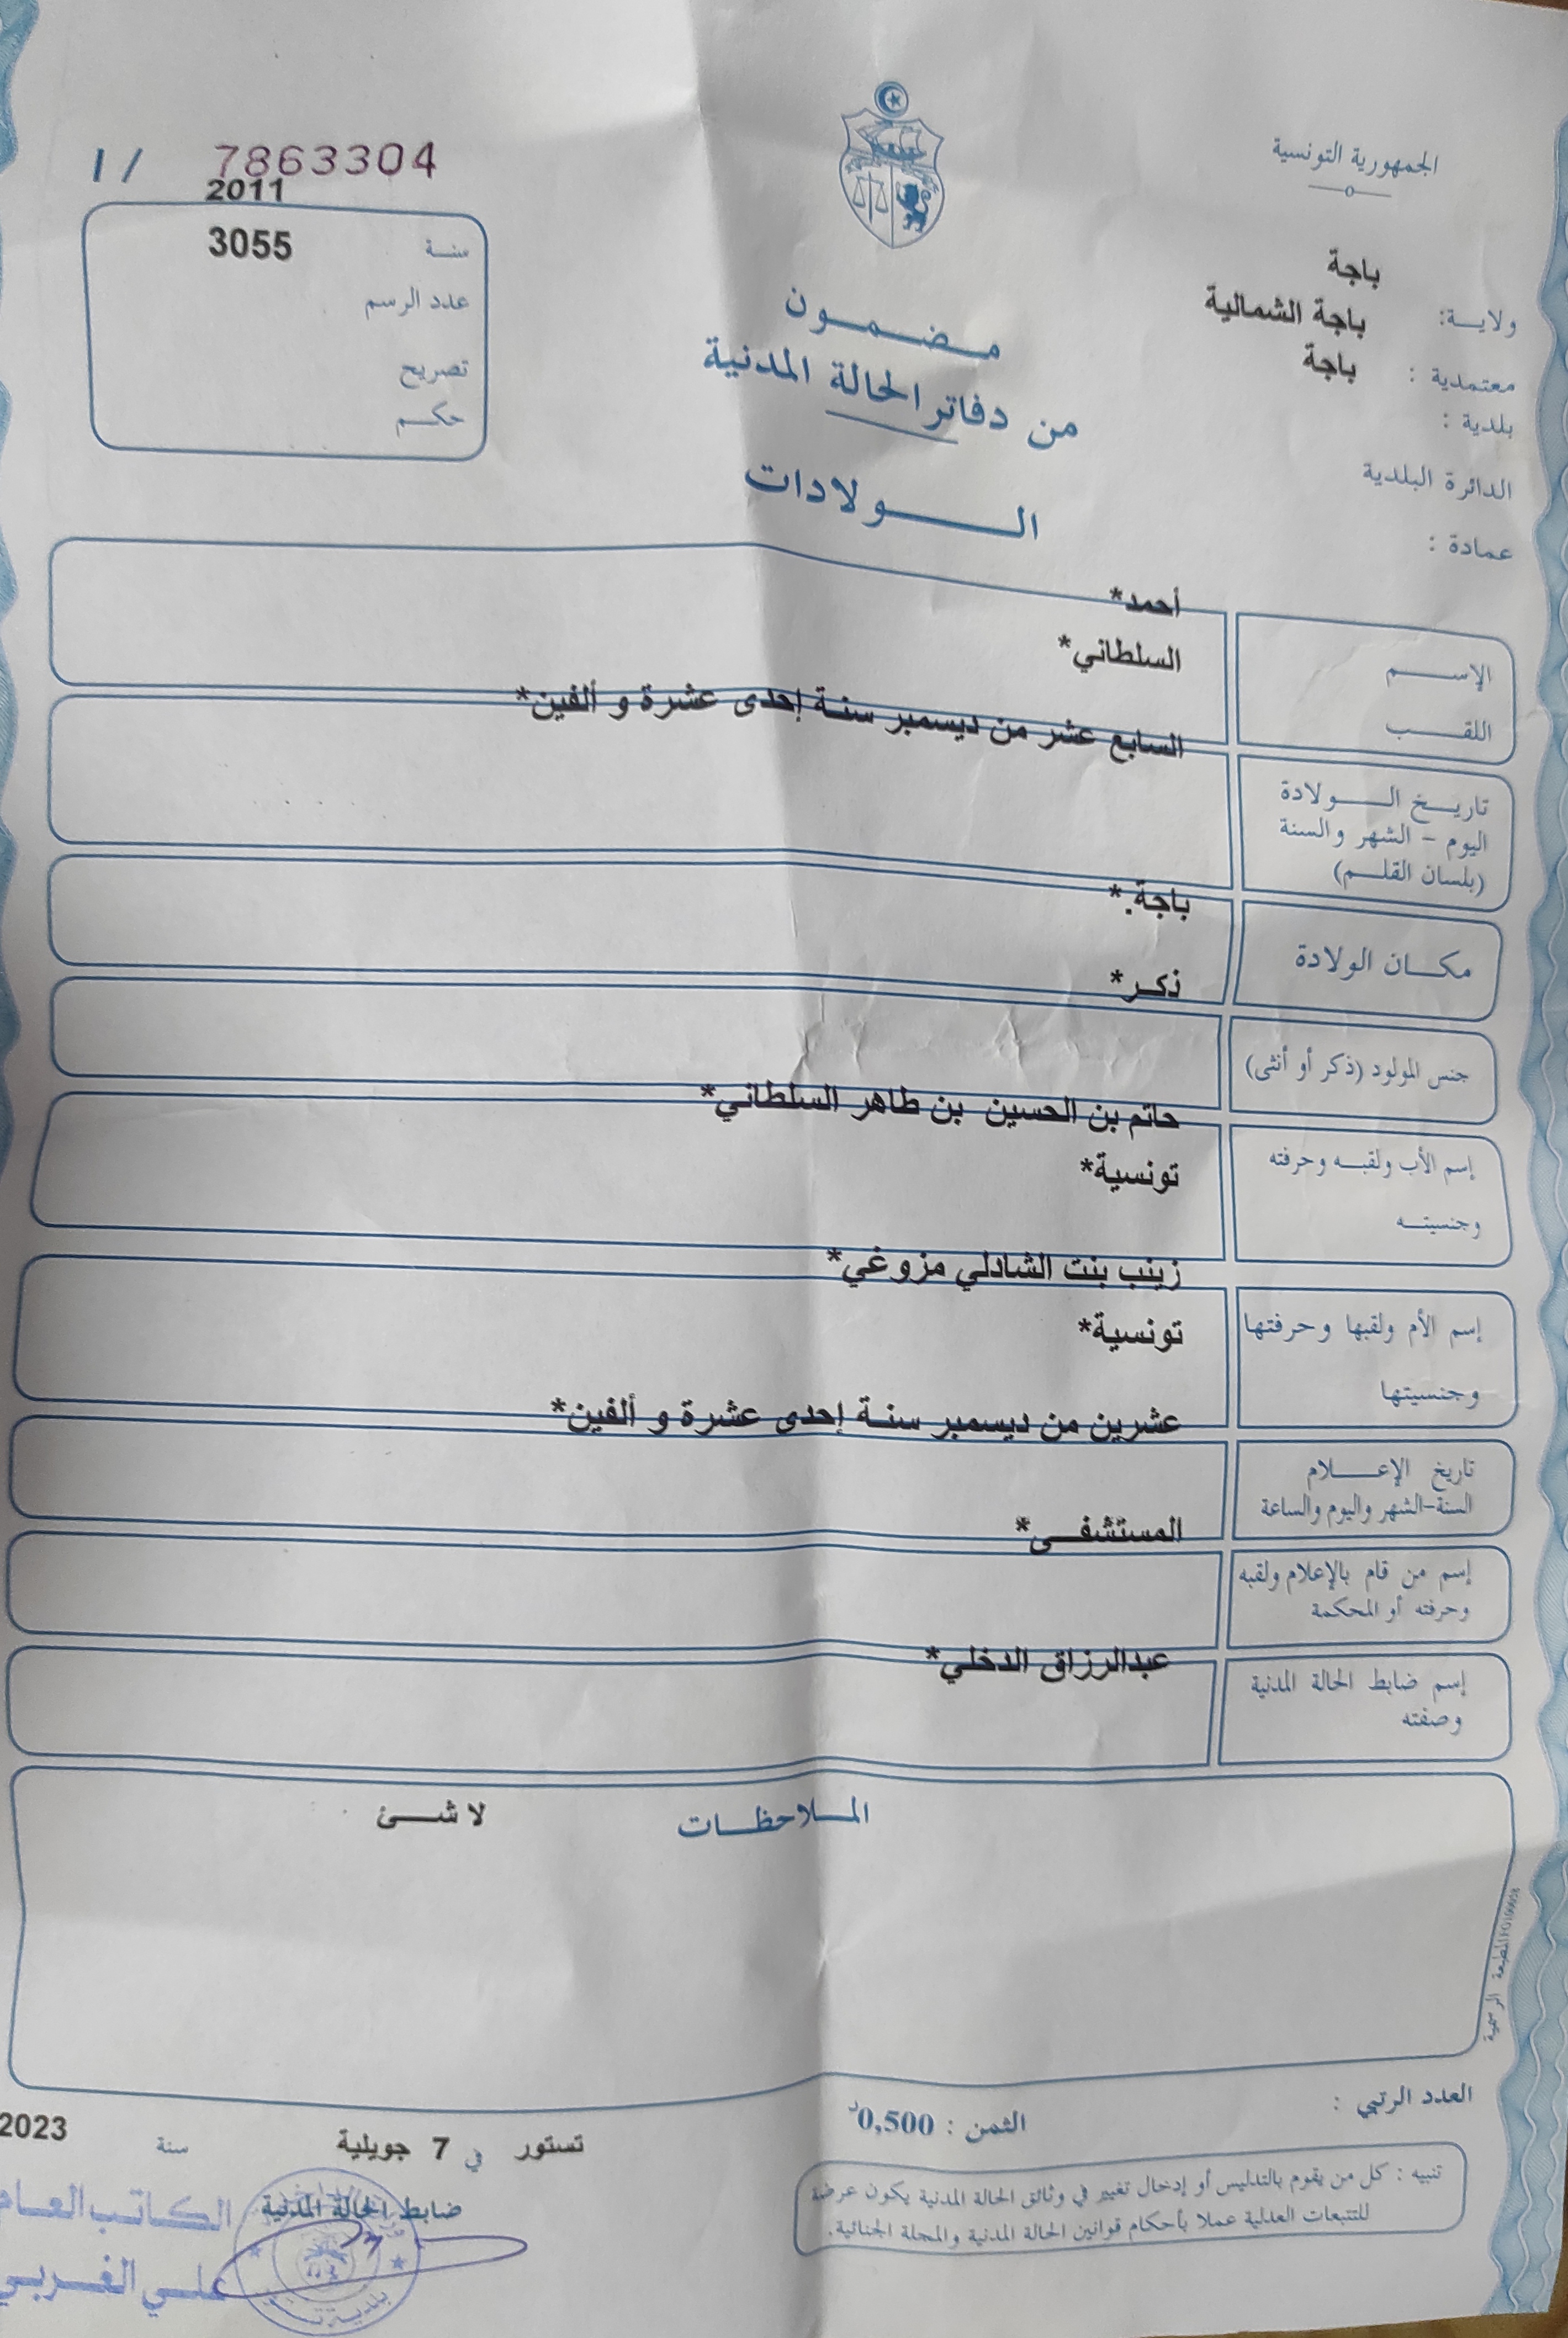 الجمهورية التونسية
1 / 7863304
2011
سنة 3055
عدد الرسم
تصريح
حكم
باجة
ولاية: باجة الشمالية
معتمدية : باجة
بلدية :
الدائرة البلدية
عمادة :
مضمون
من دفاتر الحالة المدنية
الولادات
أحمد*
الإسم
السلطاني*
اللقب
السابع عشر من ديسمبر سنة إحدى عشرة و ألفين*
تاريخ الولادة
اليوم - الشهر والسنة
(بلسان القلم)
باجة.*
مكان الولادة
ذكر*
جنس المولود (ذكر أو أنثى)
حاتم بن الحسين بن طاهر السلطاني*
إسم الأب ولقبه وحرفته
تونسية*
وجنسيته
زينب بنت الشادلي مزوغي*
إسم الأم ولقبها وحرفتها
تونسية*
وجنسيتها
عشرين من ديسمبر سنة إحدى عشرة و ألفين*
تاريخ الإعلام
السنة-الشهر واليوم والساعة
المستشفى*
إسم من قام بالإعلام ولقبه
وحرفته أو المحكمة
عبدالرزاق الدخلي*
إسم ضابط الحالة المدنية
وصفته
الملاحظات لا شئ
المطبعة الرسمية
العدد الرتبي :
الثمن : 0,500د
تستور في 7 جويلية سنة 2023
تنبيه : كل من يقوم بالتدليس أو إدخال تغيير في وثائق الحالة المدنية يكون عرضة
للتتبعات العدلية عملا بأحكام قوانين الحالة المدنية والمجلة الجنائية.
ضابط الحالة المدنية
الكاتب العام
علي الغربي
بلدية